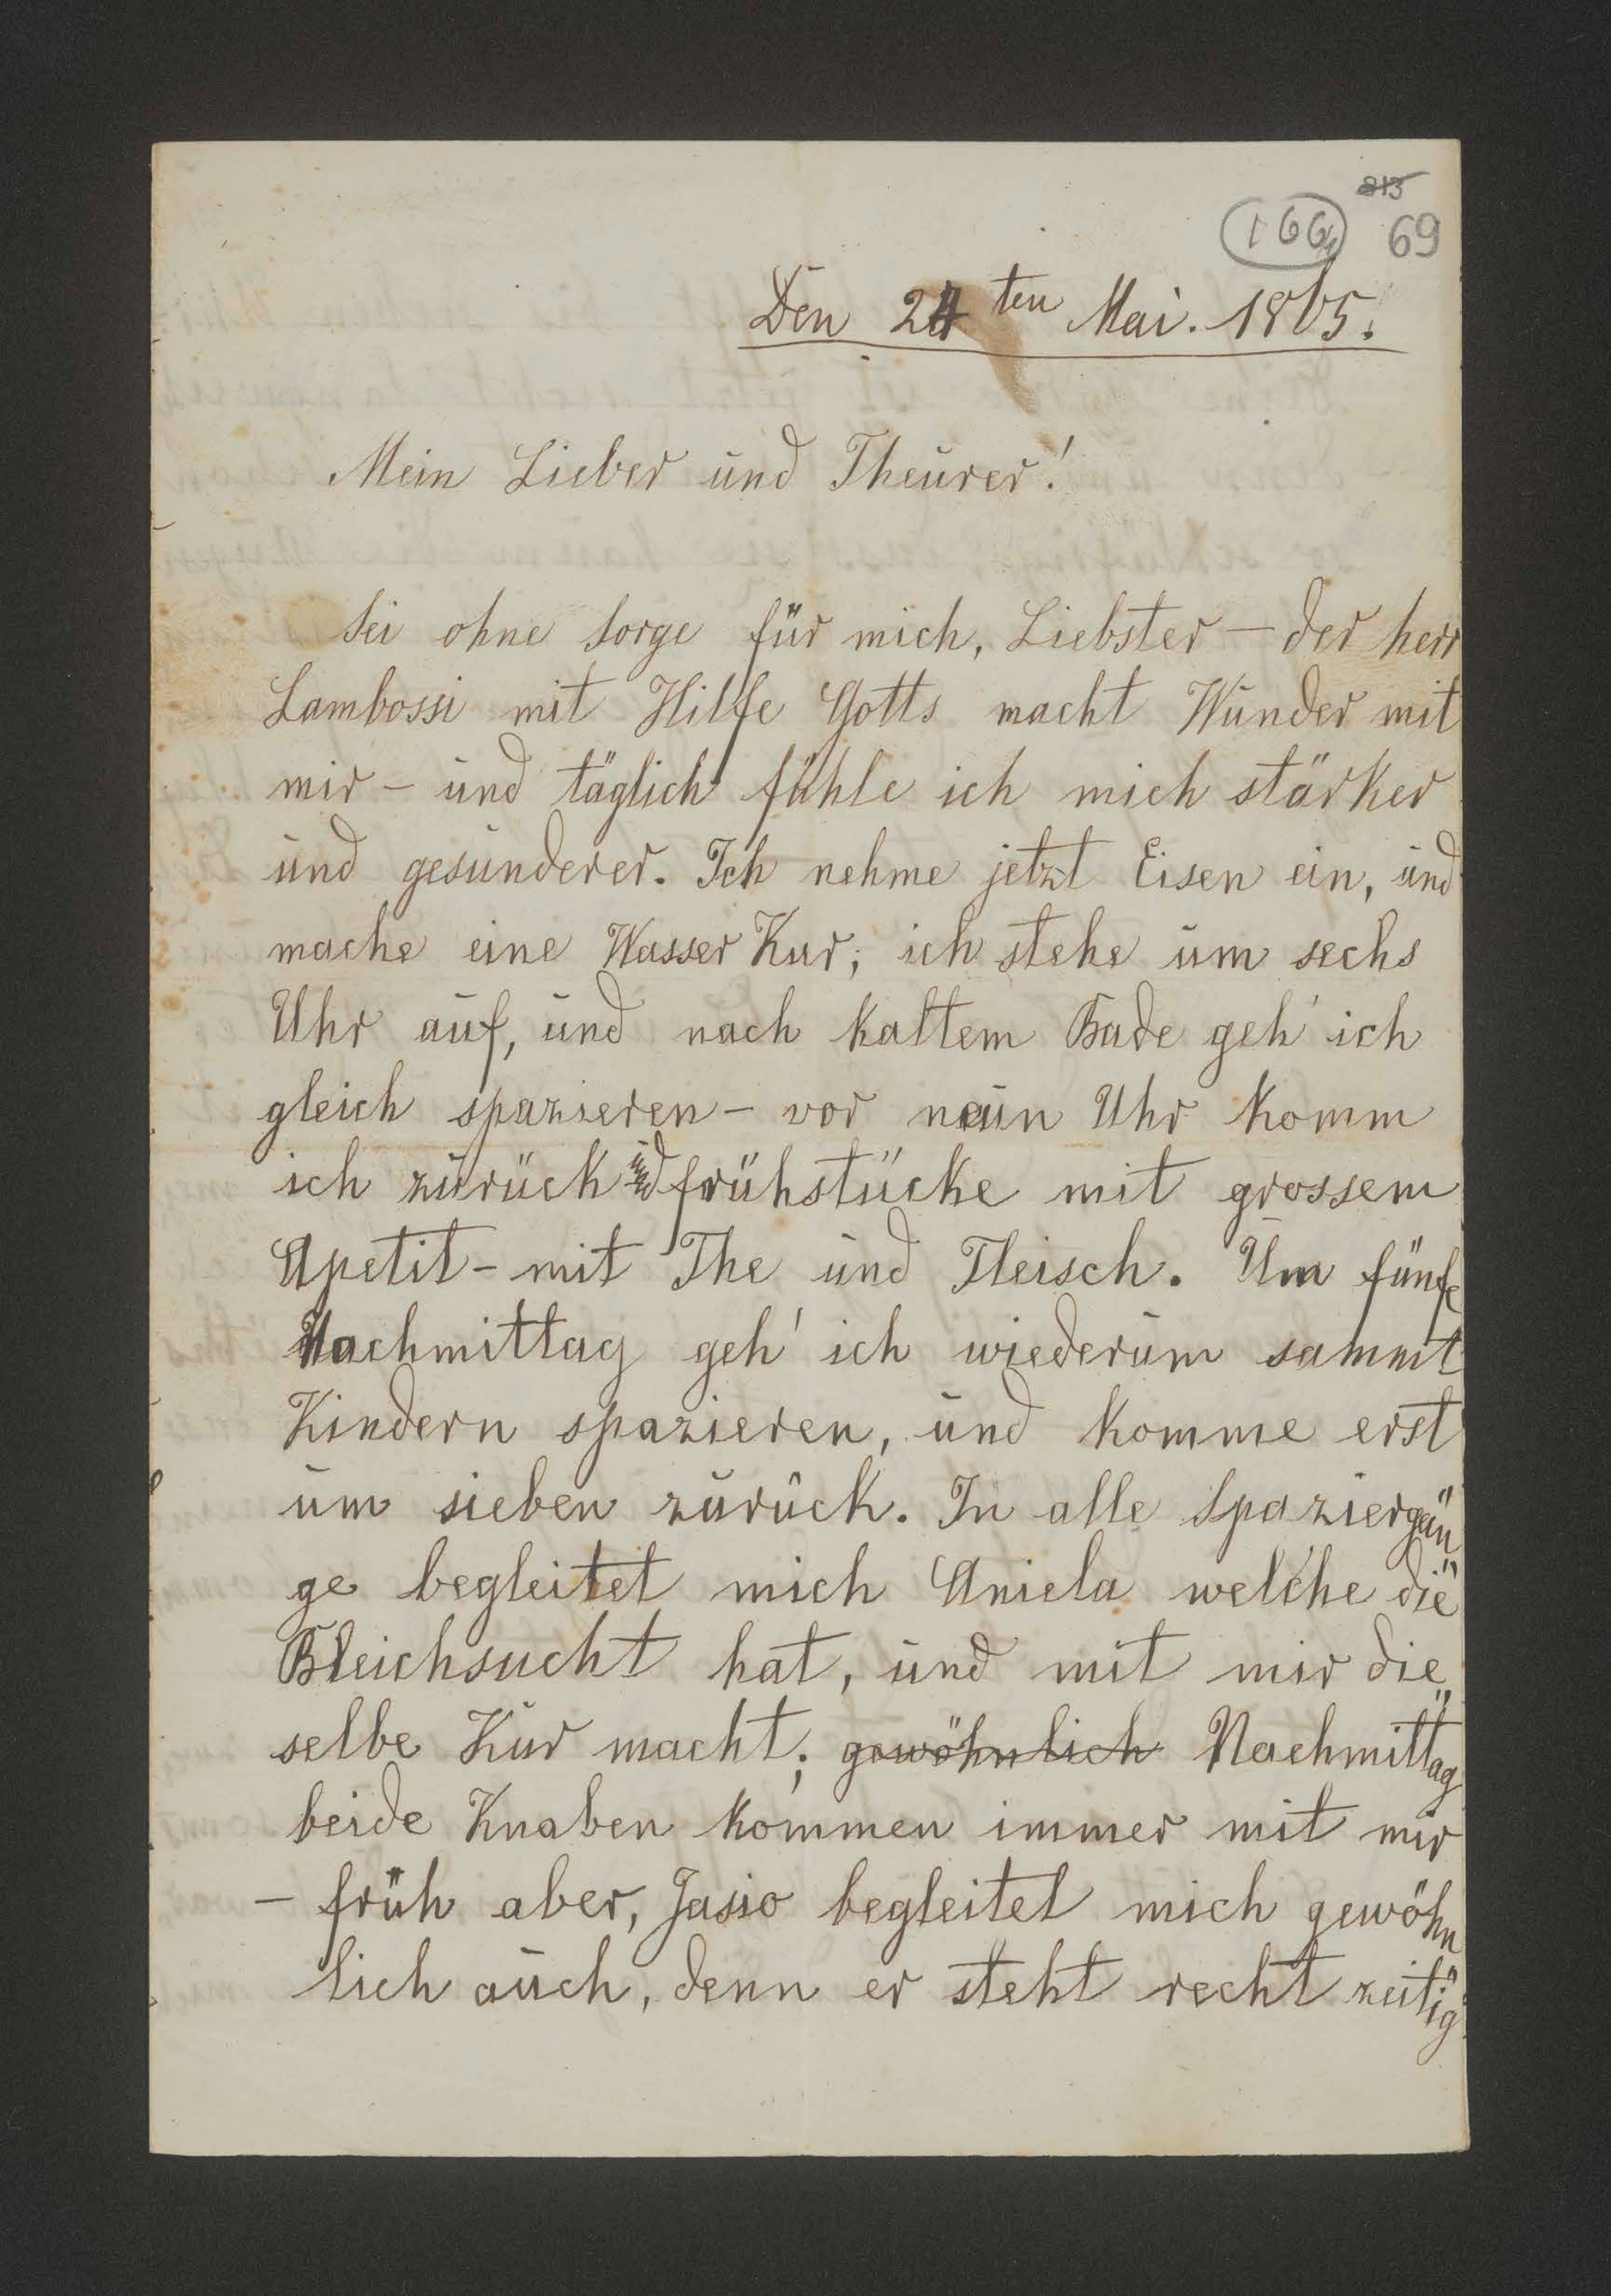 813
166 69
Den 24ten Mai. 1865.
Mein Lieber und Theurer!
Sei ohne Sorge für mich, Liebster – der herr
Lambossi mit Hilfe Gotts macht Wunder mit
mir – und täglich fühle ich mich stärker
und gesunderer. Ich nehme jetzt Eisen ein, und
mache eine Wasser Kur; ich stehe um sechs
Uhr auf, und nach kaltem Bade geh' ich
gleich spazieren – vor neun Uhr komm
ich zurück und frühstücke mit grossem
Apetit – mit The und Fleisch. Um fünfe
Nachmittag geh' ich wiederum sammt
Kindern spazieren, und komme erst
um sieben zurück. In alle Spaziergän"
ge begleitet mich Aniela welche die"
Bleichsucht hat, und mit mir die"
selbe Kur macht; gewöhnlich Nachmittag
beide Knaben kommen immer mit mir
– früh aber, Jasio begleitet mich gewöhn
lich auch, denn er steht recht zeitig"